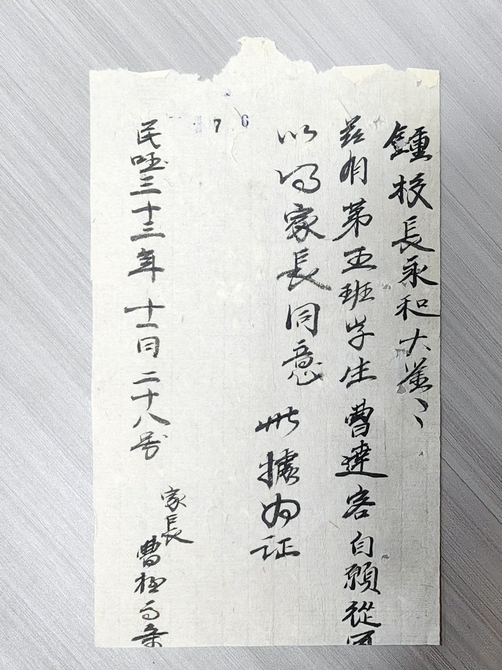 鍾校長永和大鉴
茲有第五班学生曹達客自願從軍
以得家長同意
此據为证
民国三十三年十一月二十八号
家長
曹
7 6